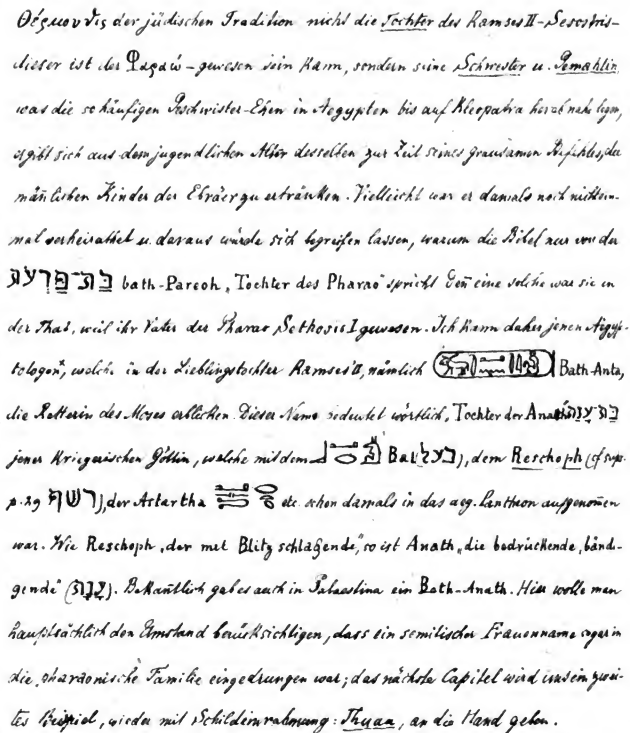 Θέρμουθις der jüdischen Tradition nicht die Tochter des Ramses II-Sesostris-
dieser ist der Φαραώ - gewesen sein kann, sondern seine Schwester u. Gemahlin,
was die so häufigen Geschwister-Ehen in Aegypten bis auf Kleopatra herab nahe legen,
ergibt sich aus dem jugendlichen Alter desselben zur Zeit seines grausamen Befehles, die
mäñlichen Kinder der Ebräer zu ertränken. Vielleicht war er damals noch nicht ein-
mal verheirathet u. daraus würde sich begreifen lassen, warum die Bibel nur von der
בת־פרעה bath-Pareoh „Tochter des Pharao" spricht. Deñ eine solche war sie in
der That, weil ihr Vater der Pharao Sethosis I gewesen. Ich kann daher jenen Aegyp-
tologen, welche in der Lieblingstochter Ramses' II, nämlich Bath-Anta,
die Retterin des Moses erblicken. Dieser Name bedeutet wörtlich „Tochter der Anath בת־ענת
jener Kriegerischen Göttin, welche mit dem Bal (בעל), dem Reschoph (cf sup.
p. 29 רשף), der Astartha etc. schon damals in das aeg. Pantheon aufgenom̄en
war. Wie Reschoph „der mit Blitz schlagende", so ist Anath „die bedrückende, bändi-
gende" (ענת). Bekañtlich gab es auch in Palaestina ein Beth-Anath. Hier wolle man
hauptsächlich den Umstand berücksichtigen, dass ein semitischer Frauenname sogar in
die pharaonische Familie eingedrungen war; das nächste Capitel wird uns ein zwei-
tes Beispiel, wieder mit Schildeinrahmung: Thuaa, an die Hand geben.